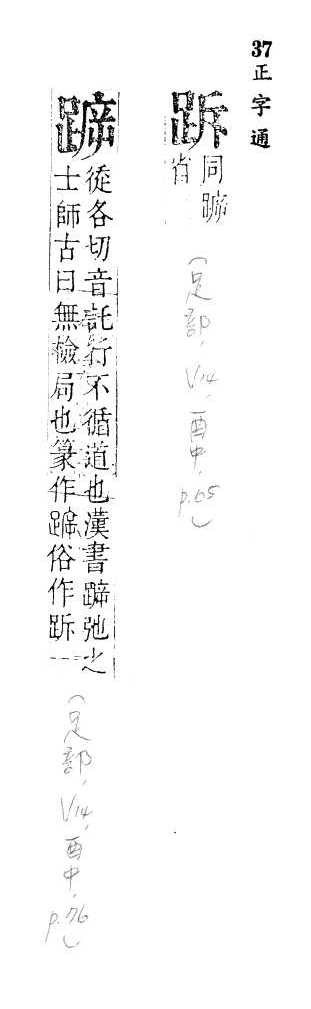 37 正字通
跅
同
省
(足部, V14, 酉中, p.65)
從各切音託行不循道也漢書弛之
士師古曰無檢局也篆作俗作跅
(足部, V14, 酉中, p.76)